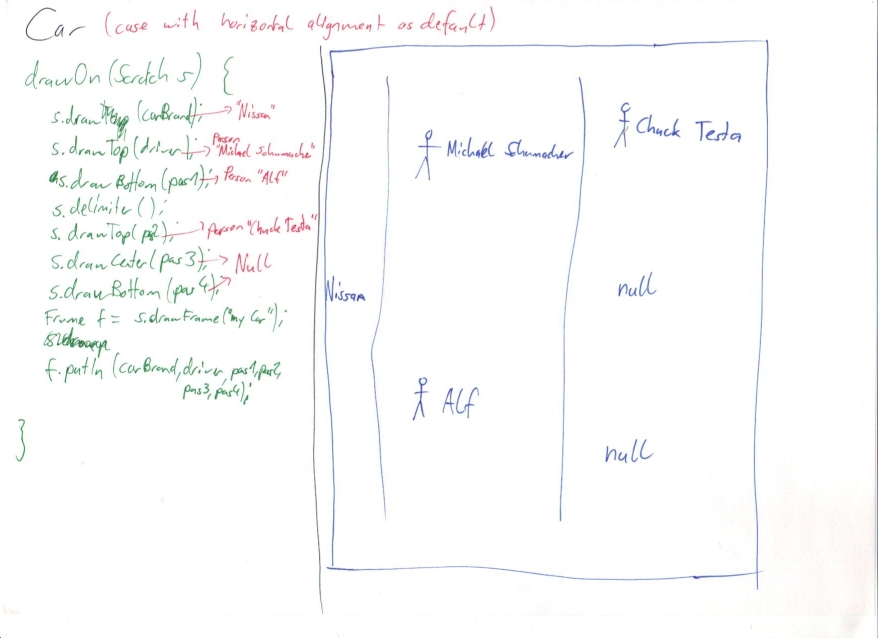 Car (case with horizontal alignment as default)
drawOn (Scratch s) {
(carBrand); → "Nissan"
s.drawTop (driver); → Person
s.drawBottom (pas1); → Person "Alf"
s.delimiter ();
s.drawTop( ); → Person "Chuck Testa"
s.drawCenter (pas3); → Null
s.drawBottom (pas4);
Frame f = s.drawFrame("my Car");
f.putIn (carBrand, driver, pas1, pas2,
pas3, pas4);
}
Nissan
Michael Schumacher
Alf
Chuck Testa
null
null